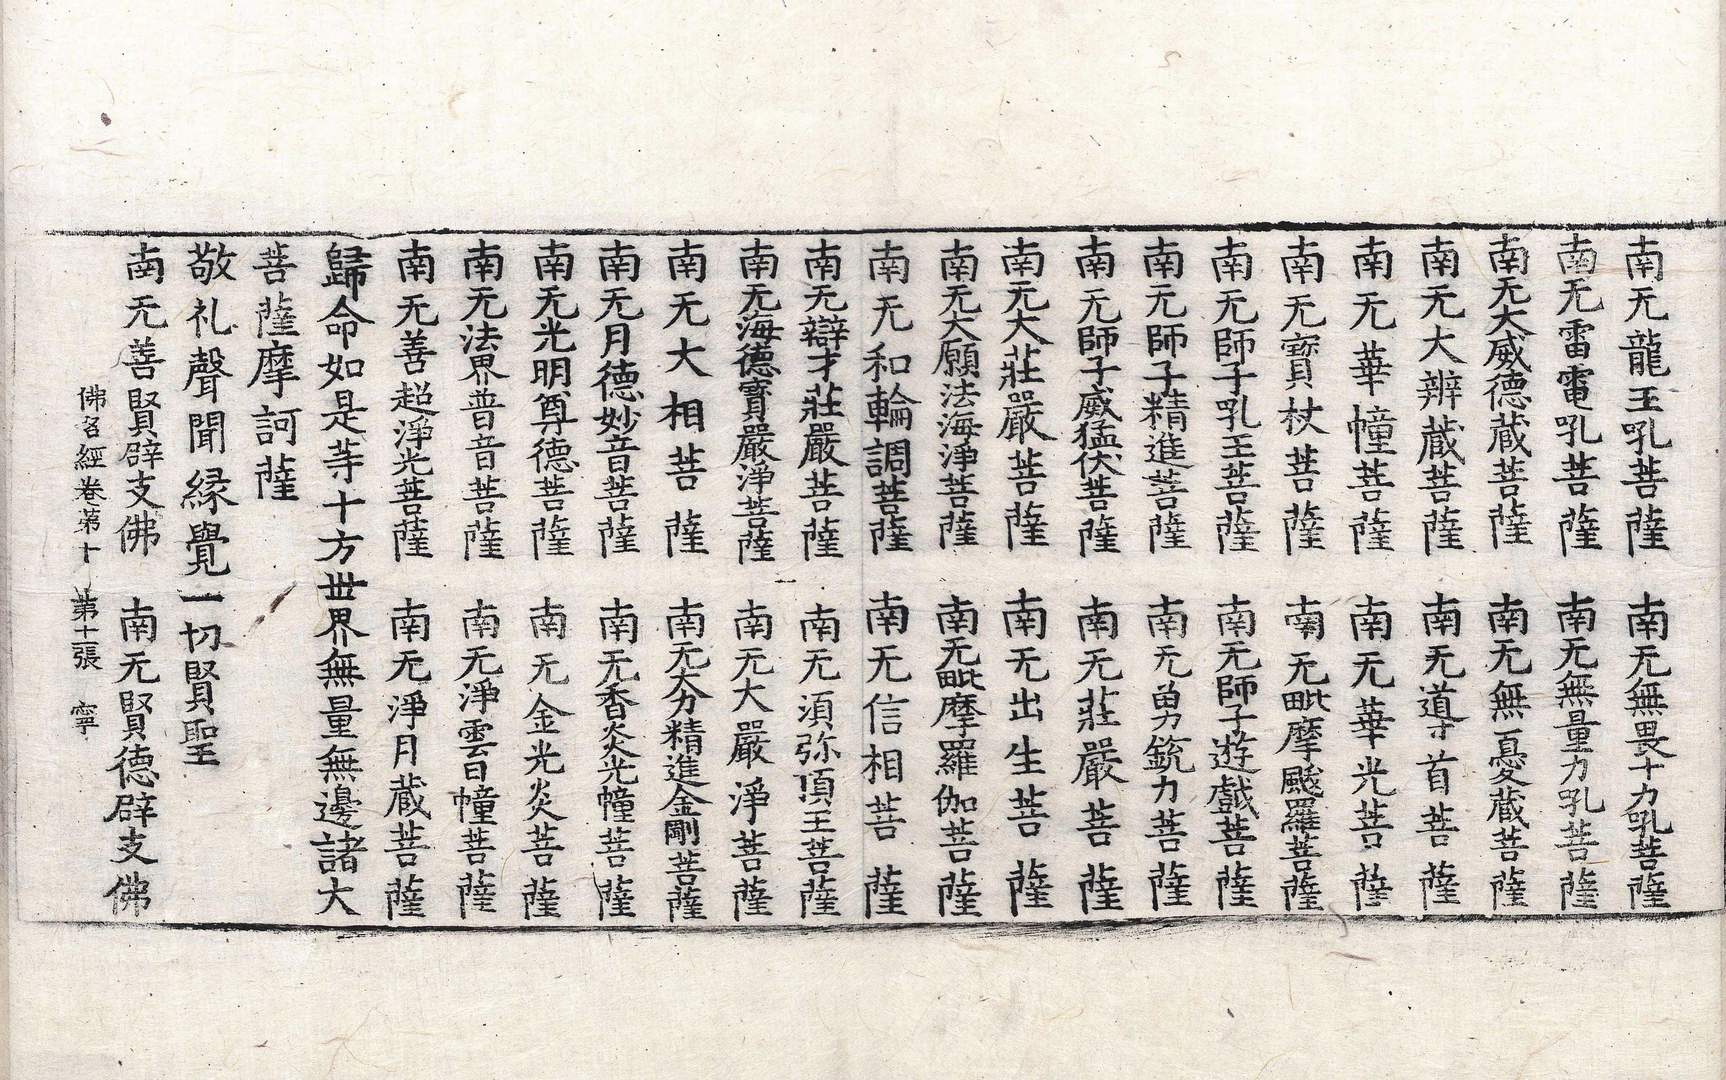 南无龍王吼菩薩　南无無畏十力吼菩薩
南无雷電吼菩薩　南无無量力吼菩薩
南无大威德藏菩薩　南无無憂藏菩薩
南无大辨藏菩薩　南无導首菩薩
南无華幢菩薩　南无華光菩薩
南无寶杖菩薩　南无毗摩颰羅菩薩
南无師子吼王菩薩　南无師子遊戲菩薩
南无師子精進菩薩　南无勇銳力菩薩
南无師子威猛伏菩薩　南无莊嚴菩薩
南无大莊嚴菩薩　南无出生菩薩
南无大願法海淨菩薩　南无毗摩羅伽菩薩
南无和輪調菩薩　南无信相菩薩
南无辯才莊嚴菩薩　南无須弥頂王菩薩
南无海德寶嚴淨菩薩　南无大嚴淨菩薩
南无大相菩薩　南无大力精進金剛菩薩
南无月德妙音菩薩　南无香炎光幢菩薩
南无光明尊德菩薩　南无金光炎菩薩
南无法界普音菩薩　南无淨雲日幢菩薩
南无善超淨光菩薩　南无淨月蔵菩薩
歸命如是等十方世界無量無邊諸大
菩薩摩訶薩
敬礼聲聞縁覺一切賢聖
南无善賢辟支佛　南无賢德辟支佛
佛名經卷第十　第十二張　寧